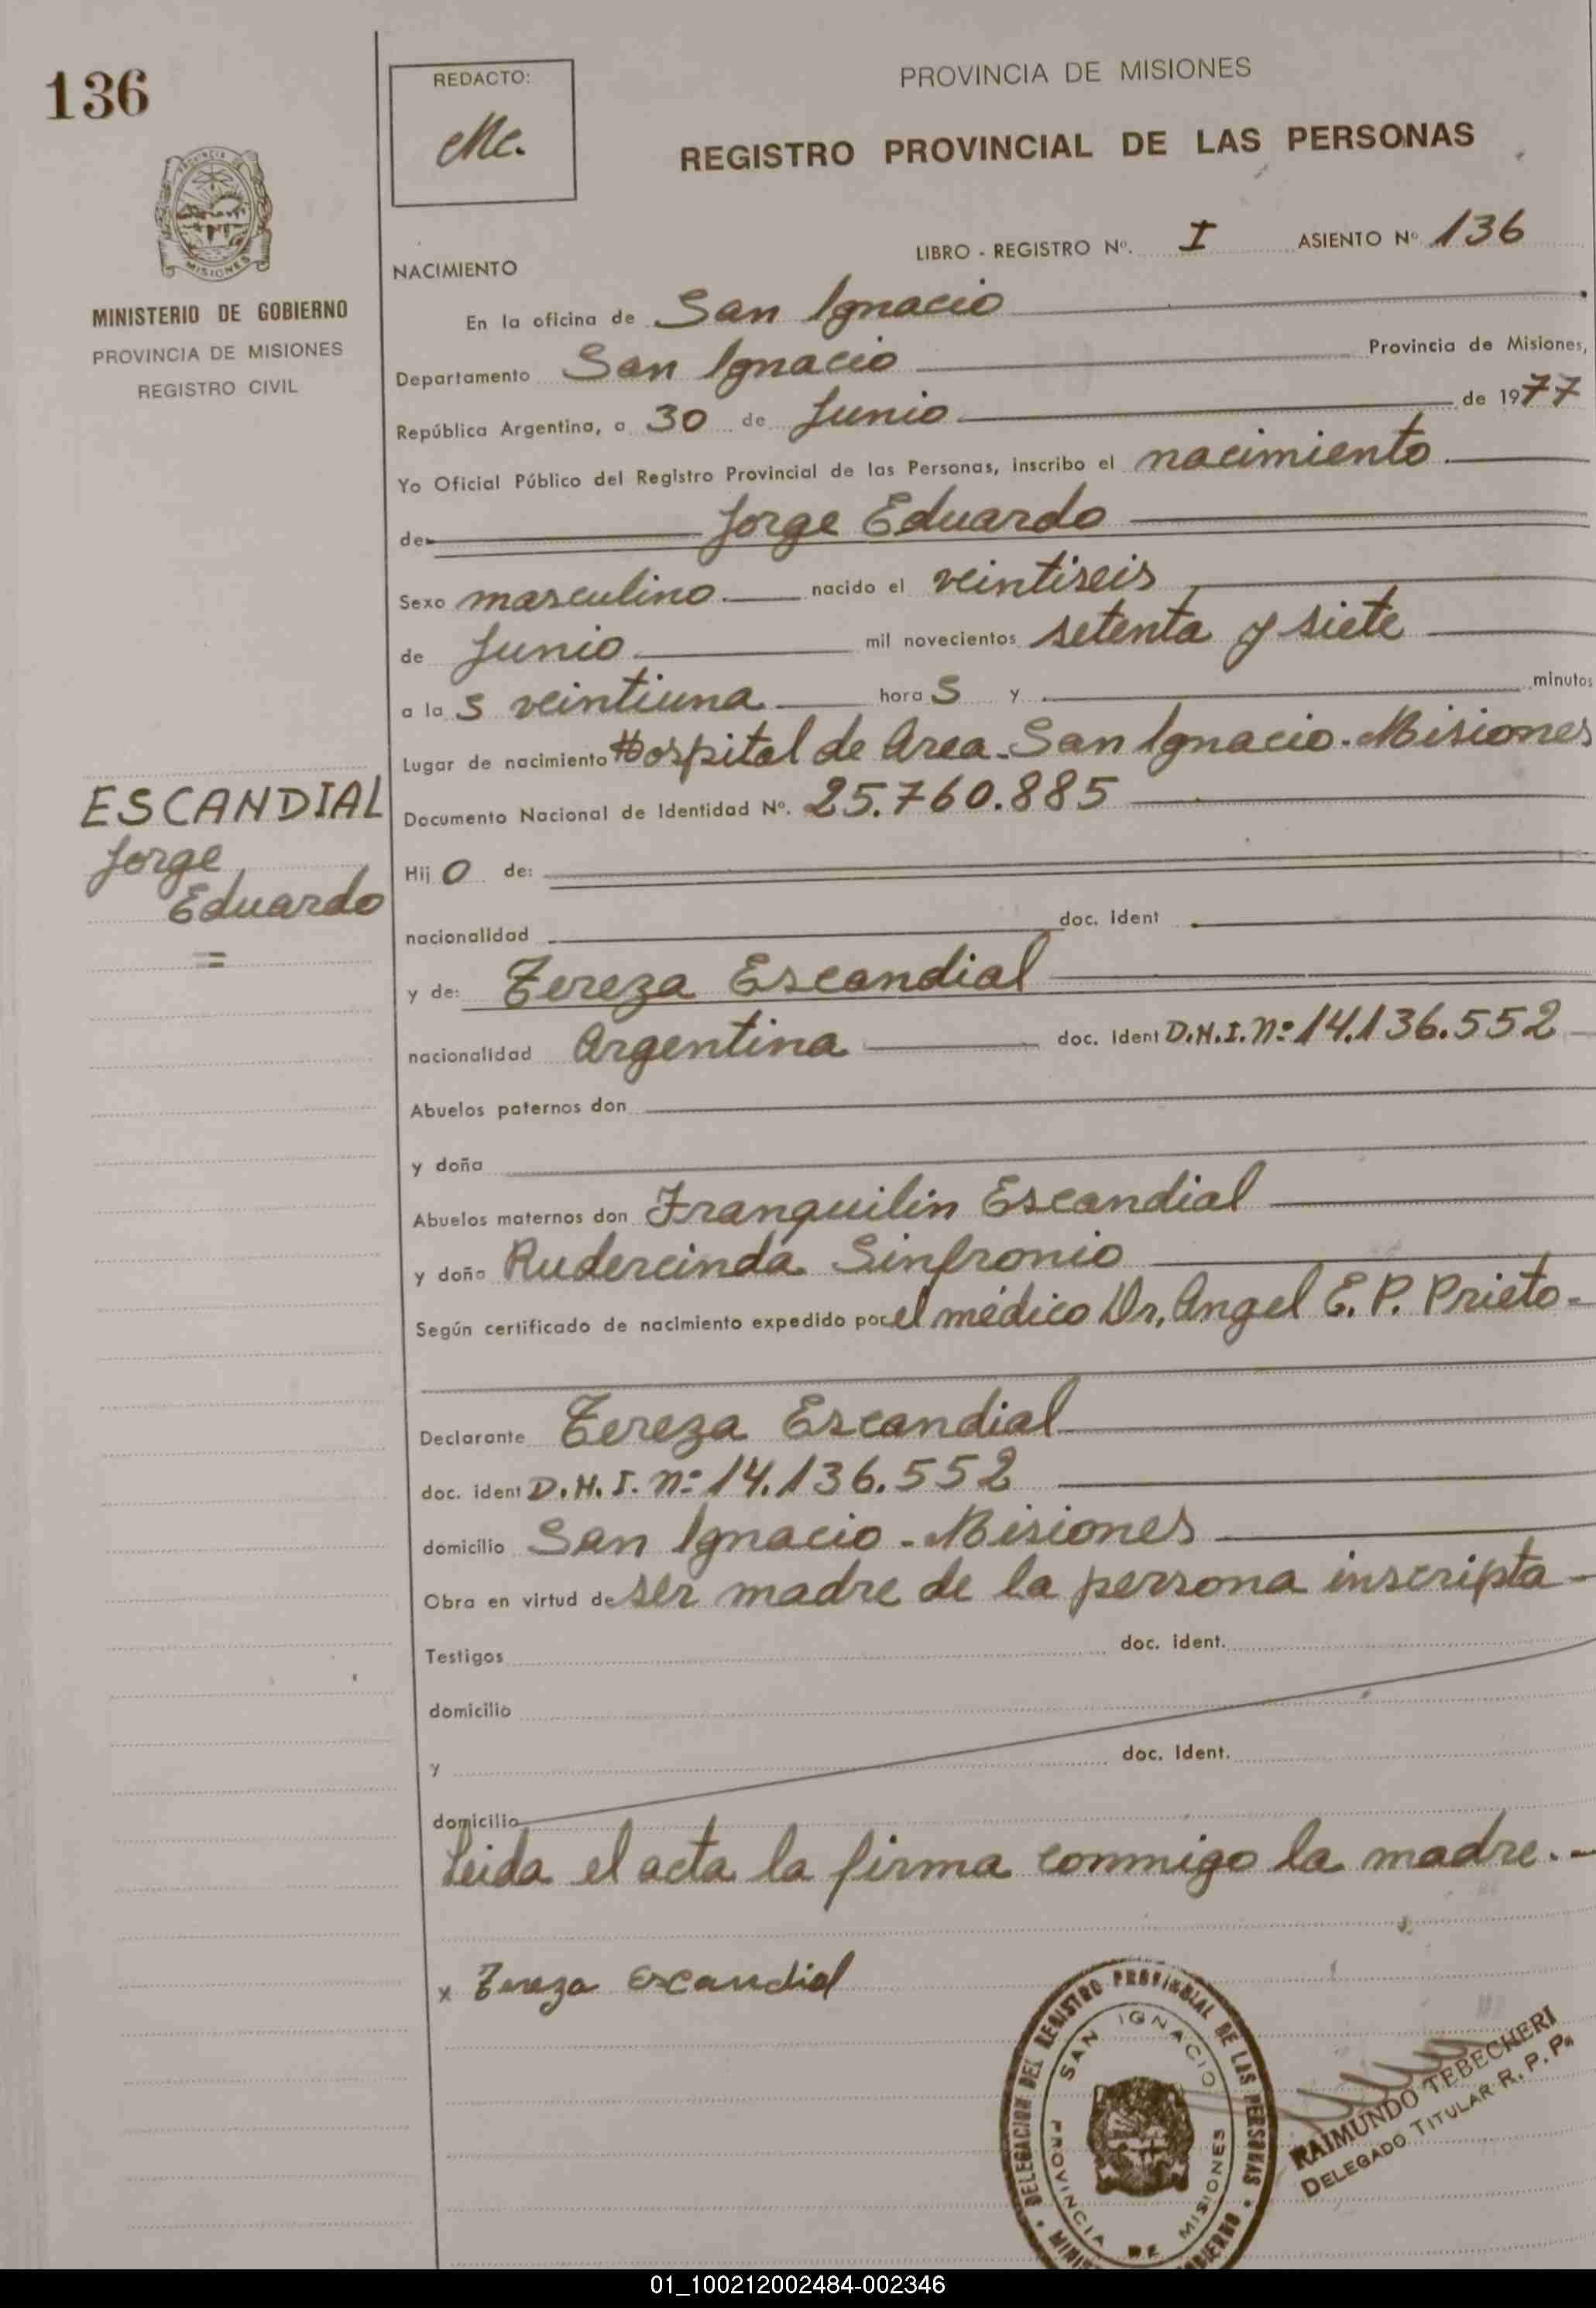 136
REDACTO:
Mc.
PROVINCIA DE MISIONES
REGISTRO PROVINCIAL DE LAS PERSONAS
MISIONES
MINISTERIO DE GOBIERNO
PROVINCIA DE MISIONES
REGISTRO CIVIL
LIBRO - REGISTRO Nº. I ASIENTO Nº 136
NACIMIENTO
En la oficina de San Ignacio
Departamento San Ignacio Provincia de Misiones,
República Argentina, a 30 de Junio de 1977
Yo Oficial Público del Registro Provincial de las Personas, inscribo el nacimiento
de Jorge Eduardo
Sexo masculino nacido el veintiseis
de Junio mil novecientos setenta y siete
a las veintiuna horas y minutos
Lugar de nacimiento Hospital de Area - San Ignacio - Misiones
Documento Nacional de Identidad Nº. 25.760.885
ESCANDIAL
Jorge
Eduardo
=
Hijo de:
nacionalidad doc. ident
y de: Tereza Escandial
nacionalidad Argentina doc. ident D.N.I. Nº 14.136.552
Abuelos paternos don
y doña
Abuelos maternos don Franquilin Escandial
y doña Rudercinda Sinfronio
Según certificado de nacimiento expedido por el médico Dr, Angel E. P. Prieto -
Declarante Tereza Escandial
doc. ident D.N.I. Nº 14.136.552
domicilio San Ignacio - Misiones
Obra en virtud de ser madre de la persona inscripta -
Testigos doc. ident.
domicilio
y doc. ident.
domicilio
Leida el acta la firma conmigo la madre. -
x Tereza Escandial
DELEGACION DEL REGISTRO PROVINCIAL DE LAS PERSONAS
SAN IGNACIO
PROVINCIA DE MISIONES
RAIMUNDO TEBECHERI
DELEGADO TITULAR R. P. P.
01_100212002484-002346